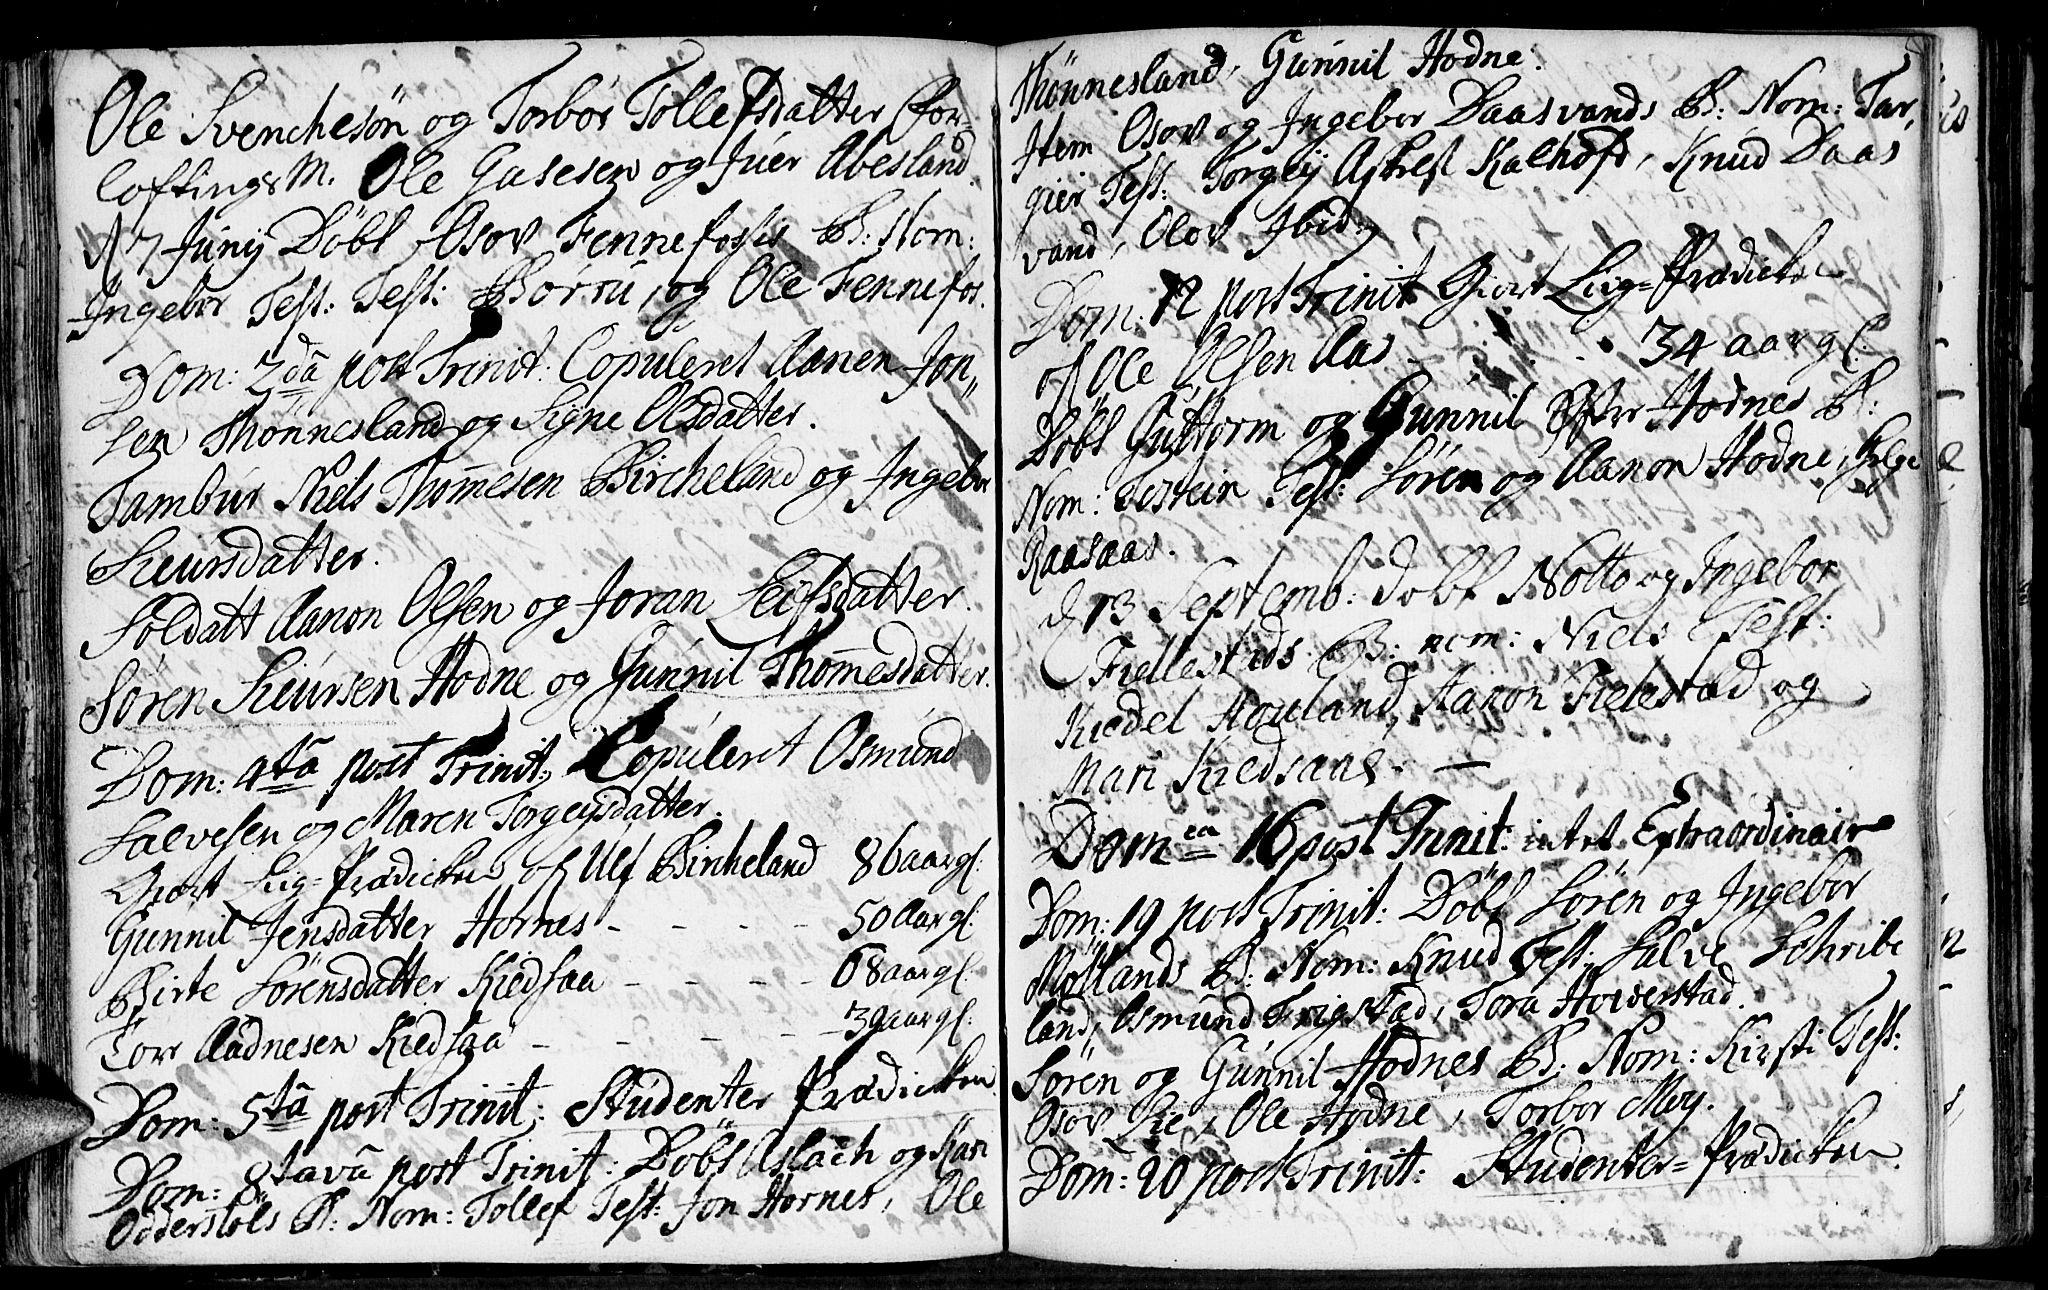 Ole Svenchesön og Torbör Tollefsdatter for-
loftings M. Ole Gasesen og Juer Abesland.
d 7 Junij Döbt Osov Fennefosses B: Nom:
Ingebor Test: Test: Börru, og Ole Fennefos.
Dom: 2dâ post Trinit: Copuleret Aanen Jon„
sen Thönnesland og Signe Olsdatter.
Tambur Niels Thom̄esen Bircheland og Ingebor
Siursdatter.
Soldatt Aanon Olsen og Joran Leifsdatter.
Sören Siursen Hodne og Gunnil Thom̄esdatter.
Dom: 4tâ post Trinit: Copuleret Osmund
Salvesen og Maren Torgeysdatter.
Giort Liig-Prædicken of Ulf Birkeland 86 aar gl:
Gunnil Jensdatter Hornes - - - - 50 Aar gl:
Birte Sörensdatter Kiedsaa - - - - 68 aar gl:
Tore Aadnesen Kiedsaa - - - - 39 aar gl:
Dom: 5tâ post Trinit: Studenter Prædicken.
Dom: 8tavâ post Trinit: Döbt Aslach og Kari
Oddersköls B: Nom: Tollef Test: Jon Hornes, Ole
Thönnesland, Gunnil Hodne:
Item Osov og Ingebor Daasvands B: Nom: Tar,
gier Test: Torgeij Kalhofd, Knud Daas
vand, Olov Ibid:
Dom: 12 post Trinit Giort Liig-Prædicken
of Ole Olsen Aas - . . . 34 aar gl:
Döbt Guttorm og Gunnil Öfre Hodnes B:
Nom: Tostein Test: Sören og Aanon Hodne, Helge
Raasaas.
d 13 Septemb: döbt Notto og Ingebor
Fiellestads B: nom: Niels Test:
Kiedel Houland, Aanon Fielestad og
Mari Kiedsaae. —
Domca 16 post Trinit: intet Extraordinair
Dom: 19 post Trinit: Döbt Sören og Ingebor
Möllands B: Nom: Knud Test: Salve Schribe
land, Osmund Frigstad, Tora Hoverstad.
Sören og Gunnil Hodnes B: Nom: Kirsti Test:
Osov Lie, Ole Hodne, Torbor Moy.
Dom: 20 post Trinit: Studenter-Prædicken.